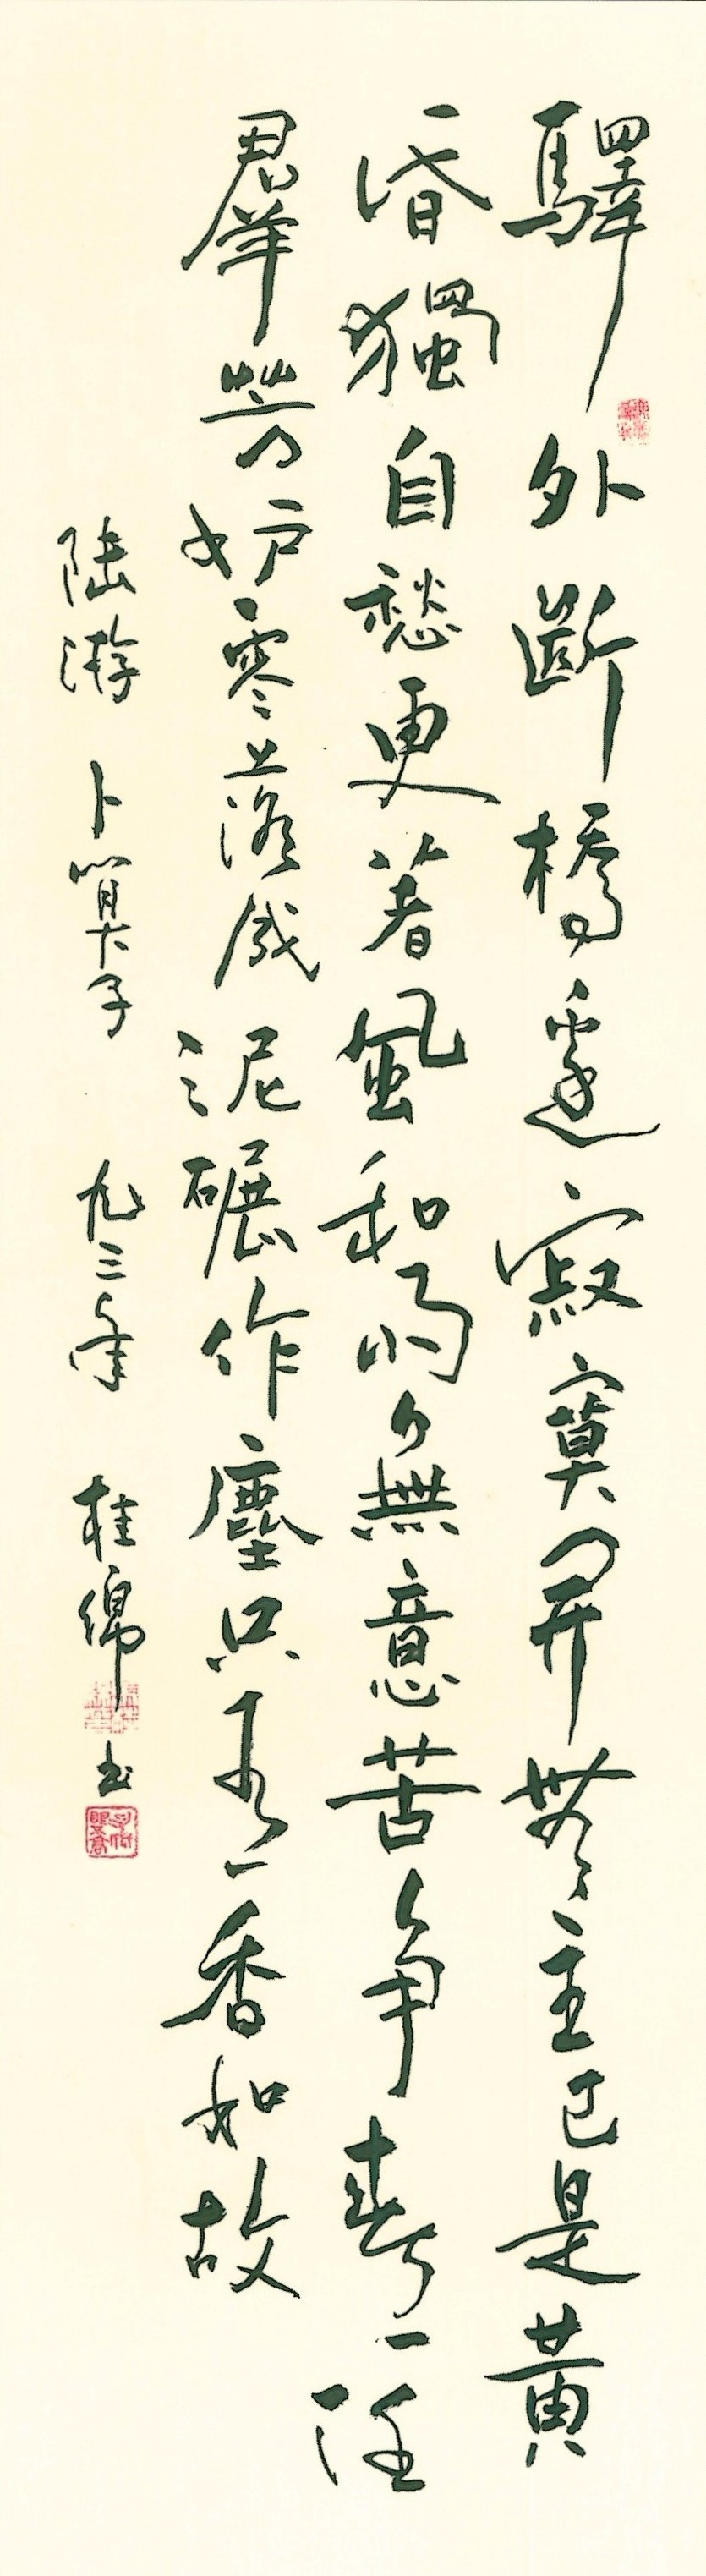 驛外斷橋邊寂寞開無主已是黃
昏獨自愁更著風和雨無意苦爭春一任
羣芳妒零落成泥碾作塵只有香如故
陸游 卜算子 九三年 桂綿书